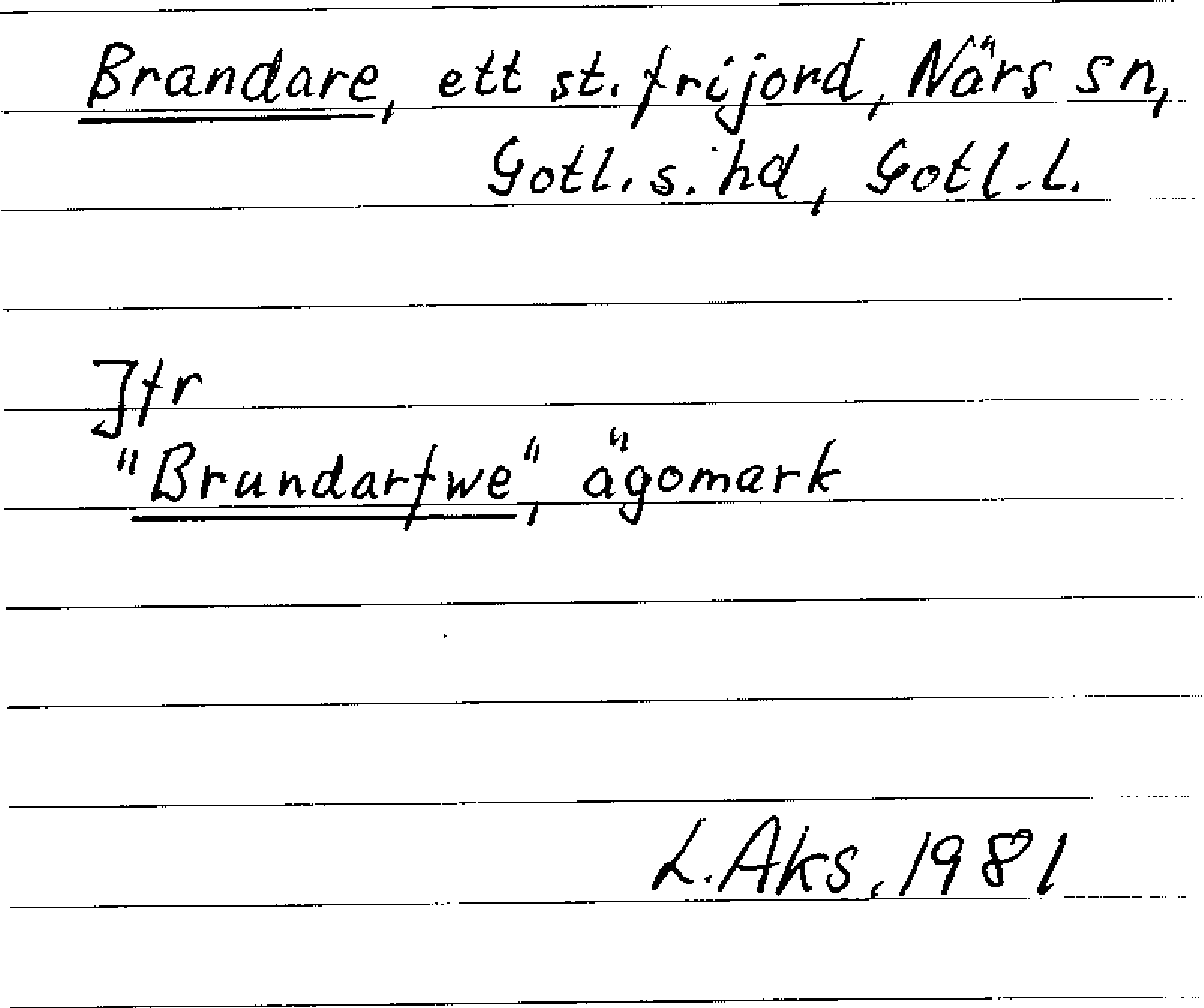 Brandare, ett st. frijord, Närs sn,
Gotl. s. hd, Gotl. l.
Jfr
"Brundarfwe", ägomark
L. Aks. 1981